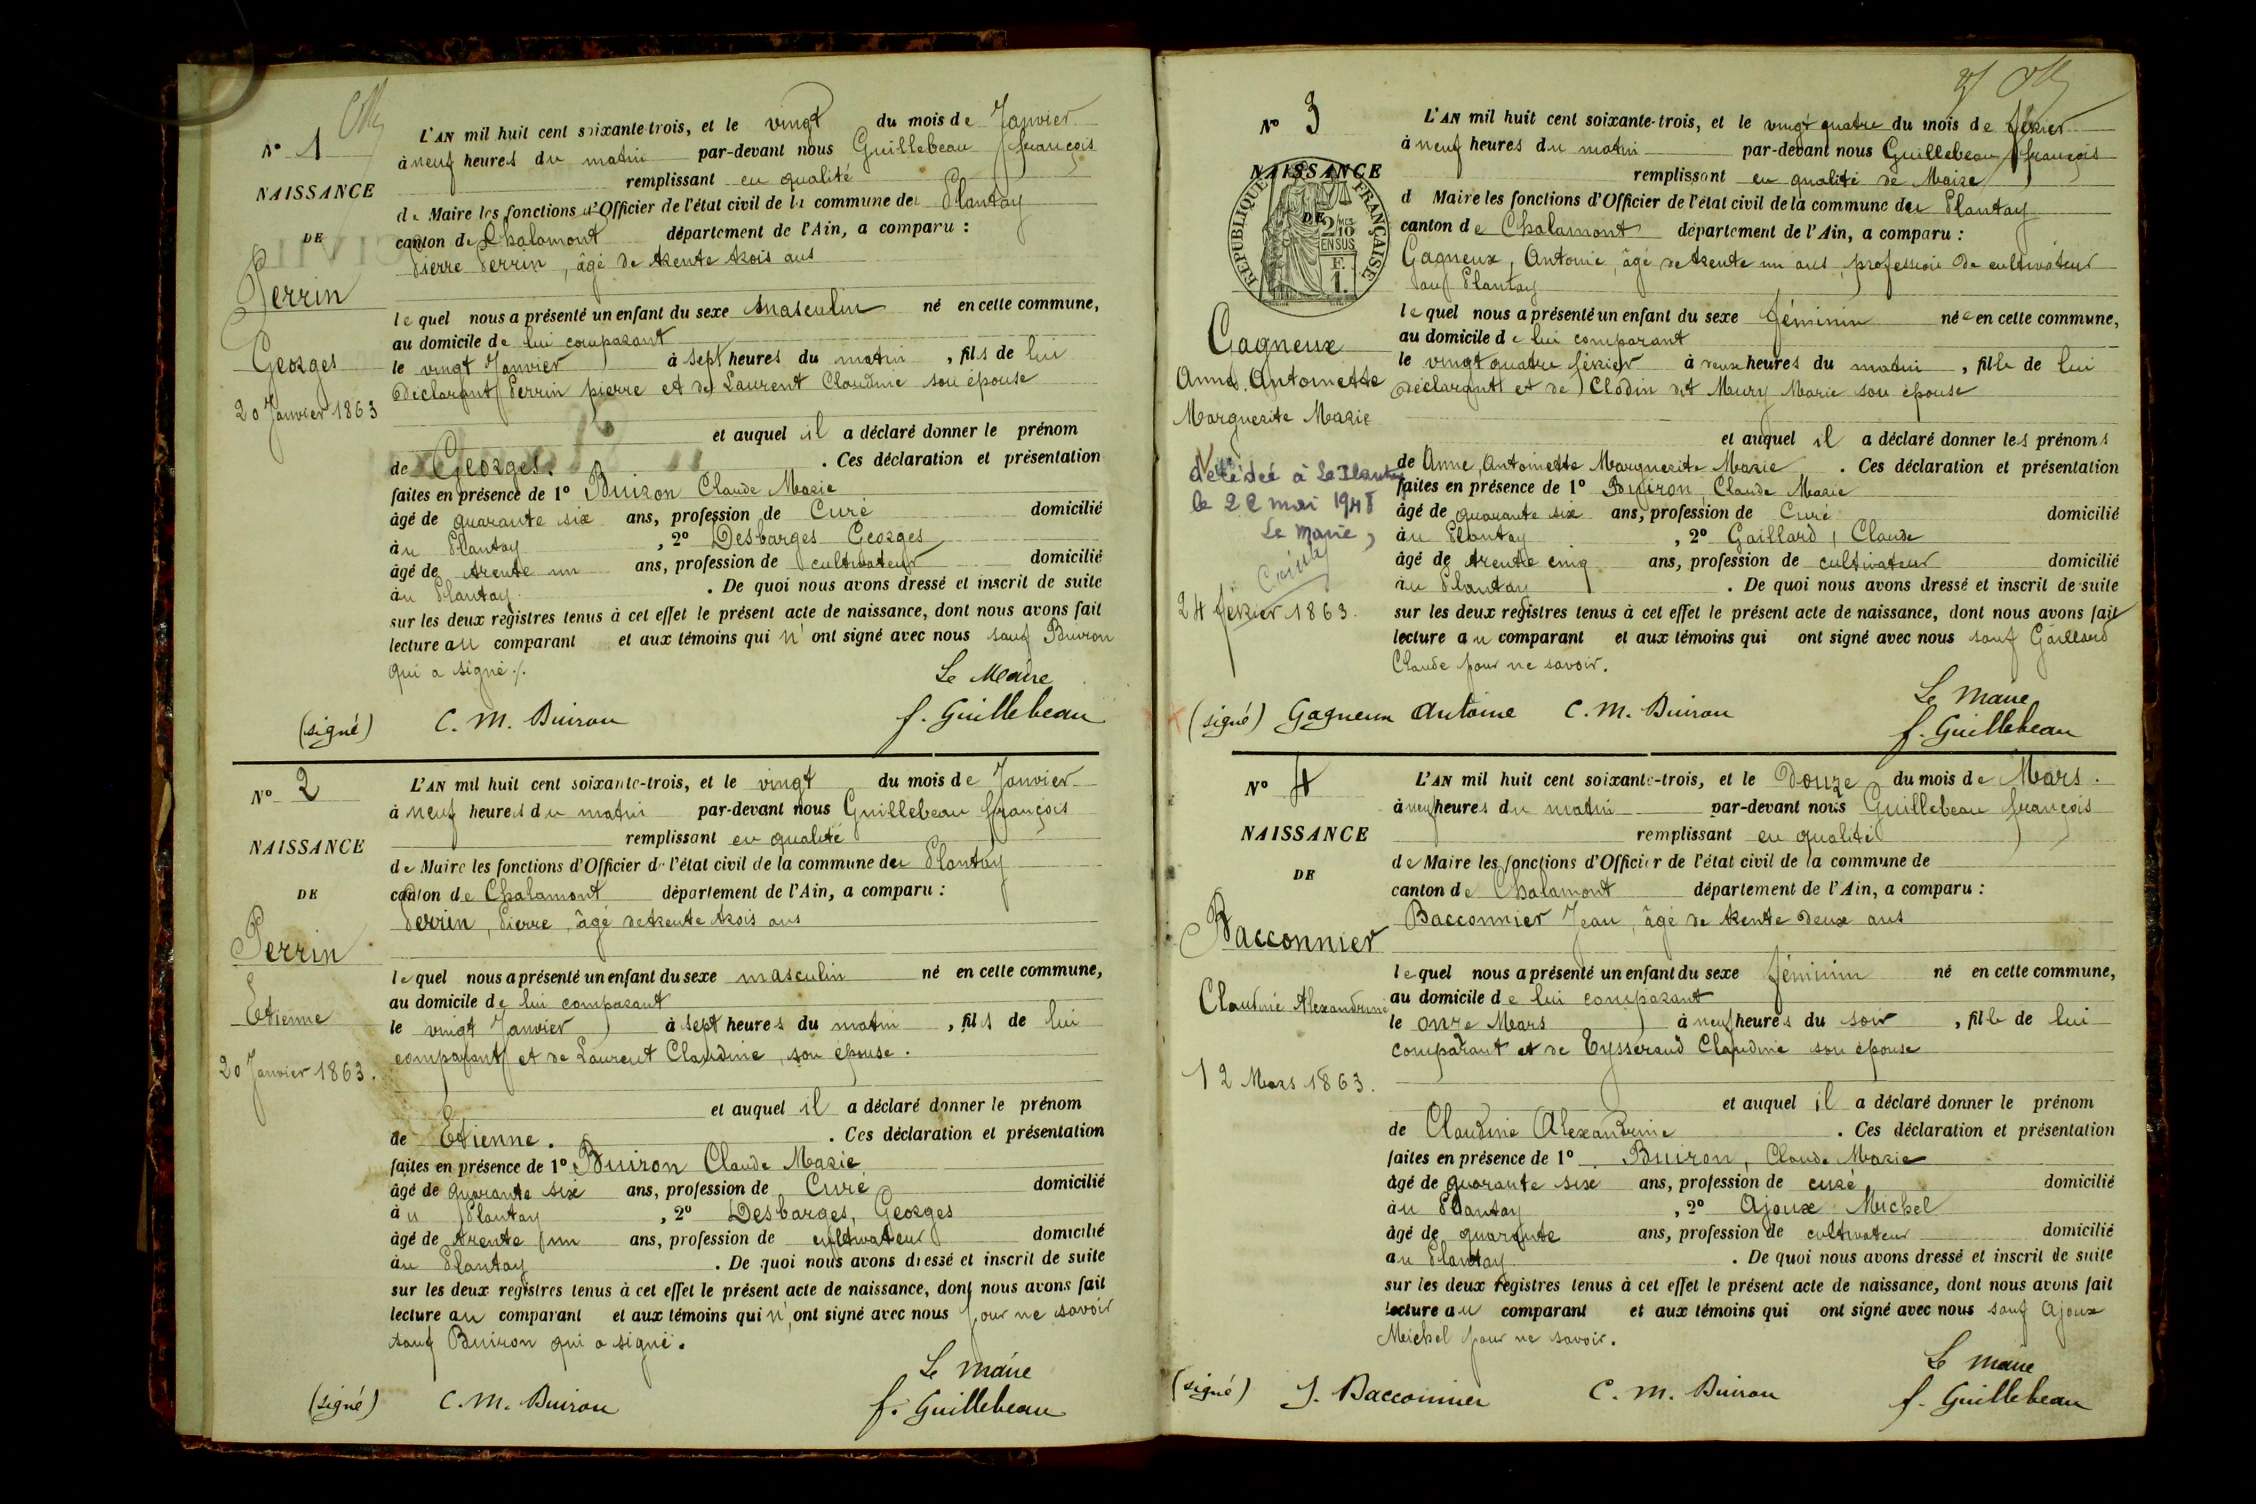 N° 1
NAISSANCE
DE
Perrin
Georges
20 Janvier 1863
L'AN mil huit cent soixante-trois, et le vingt du mois de Janvier
à neuf heures du matin par-devant nous Guillebeau françois
remplissant en qualité
de Maire les fonctions d'Officier de l'état civil de la commune du Plantay
canton de Chalamont département de l'Ain, a comparu :
Pierre Perrin, âgé de trente trois ans
lequel nous a présenté un enfant du sexe masculin né en cette commune,
au domicile de lui comparant
le vingt Janvier à sept heures du matin, fils de lui
déclarant Perrin pierre et de Laurent Claudine son épouse
et auquel il a déclaré donner le prénom
de Georges. . Ces déclaration et présentation
faites en présence de 1° Buiron Claude Marie
âgé de quarante six ans, profession de Curé domicilié
au Plantay, 2° Desbarges Georges
âgé de trente un ans, profession de cultivateur domicilié
au Plantay. De quoi nous avons dressé et inscrit de suite
sur les deux registres tenus à cet effet le présent acte de naissance, dont nous avons fait
lecture au comparant et aux témoins qui n'ont signé avec nous sauf Buiron
qui a signé ./.
Le Maire
(signé) C. M. Buiron f. Guillebeau
N° 2
NAISSANCE
DE
Perrin
Etienne
20 Janvier 1863.
L'AN mil huit cent soixante-trois, et le vingt du mois de Janvier
à neuf heures du matin par-devant nous Guillebeau françois
remplissant en qualité
de Maire les fonctions d'Officier de l'état civil de la commune du Plantay
canton de Chalamont département de l'Ain, a comparu :
Perrin, Pierre, âgé de trente trois ans
lequel nous a présenté un enfant du sexe masculin né en cette commune,
au domicile de lui comparant
le vingt Janvier à sept heures du matin, fils de lui
comparant et de Laurent Claudine, son épouse.
et auquel il a déclaré donner le prénom
de Etienne. . Ces déclaration et présentation
faites en présence de 1° Buiron Claude Marie
âgé de quarante six ans, profession de Curé domicilié
au Plantay, 2° Desbarges, Georges
âgé de trente un ans, profession de cultivateur domicilié
au Plantay. De quoi nous avons dressé et inscrit de suite
sur les deux registres tenus à cet effet le présent acte de naissance, dont nous avons fait
lecture au comparant et aux témoins qui n'ont signé avec nous pour ne savoir
sauf Buiron qui a signé.
Le maire
(signé) C. M. Buiron f. Guillebeau
N° 3
NAISSANCE
DE
RÉPUBLIQUE FRANÇAISE
2 MES 10
EN SUS
F.
1.
Gagneux
Anne. Antoinette
Marguerite Marie
décédée à Le Plantay
le 22 mai 1948
Le Maire,
24 février 1863.
L'AN mil huit cent soixante-trois, et le vingt quatre du mois de février
à neuf heures du matin par-devant nous Guillebeau françois
remplissant en qualité de Maire
d Maire les fonctions d'Officier de l'état civil de la commune du Plantay
canton de Chalamont département de l'Ain, a comparu :
Gagneux, Antoine, âgé de trente un ans, profession de cultivateur
au Plantay
lequel nous a présenté un enfant du sexe féminin née en cette commune,
au domicile de lui comparant
le vingt quatre février à deux heures du matin, fille de lui
déclarant et de Clodin dit Mury Marie son épouse
et auquel il a déclaré donner les prénoms
de Anne, Antoinette Marguerite Marie . Ces déclaration et présentation
faites en présence de 1° Buiron, Claude Marie
âgé de quarante six ans, profession de Curé domicilié
au Plantay, 2° Gaillard, Claude
âgé de trente cinq ans, profession de cultivateur domicilié
au Plantay. De quoi nous avons dressé et inscrit de suite
sur les deux registres tenus à cet effet le présent acte de naissance, dont nous avons fait
lecture au comparant et aux témoins qui ont signé avec nous sauf Gaillard
Claude pour ne savoir.
Le maire
(signé) Gagneux Antoine C. M. Buiron f. Guillebeau
N° 4
NAISSANCE
DE
Bacconnier
Claudine Alexandrine
12 Mars 1863.
L'AN mil huit cent soixante-trois, et le Douze du mois de Mars.
à neuf heures du matin par-devant nous Guillebeau françois
remplissant en qualité
de Maire les fonctions d'Officier de l'état civil de la commune de
canton de Chalamont département de l'Ain, a comparu :
Bacconnier Jean, âgé de trente deux ans
lequel nous a présenté un enfant du sexe féminin né en cette commune,
au domicile de lui comparant
le onze Mars à neuf heures du soir, fille de lui
comparant et de Tysserand Claudine son épouse
et auquel il a déclaré donner le prénom
de Claudine Alexandrine . Ces déclaration et présentation
faites en présence de 1° Buiron, Claude Marie
âgé de quarante six ans, profession de curé domicilié
au Plantay, 2° Ajoux Michel
âgé de quarante ans, profession de cultivateur domicilié
au Plantay. De quoi nous avons dressé et inscrit de suite
sur les deux registres tenus à cet effet le présent acte de naissance, dont nous avons fait
lecture au comparant et aux témoins qui ont signé avec nous sauf Ajoux
Michel pour ne savoir.
Le maire
(signé) J. Bacconnier C. M. Buiron f. Guillebeau